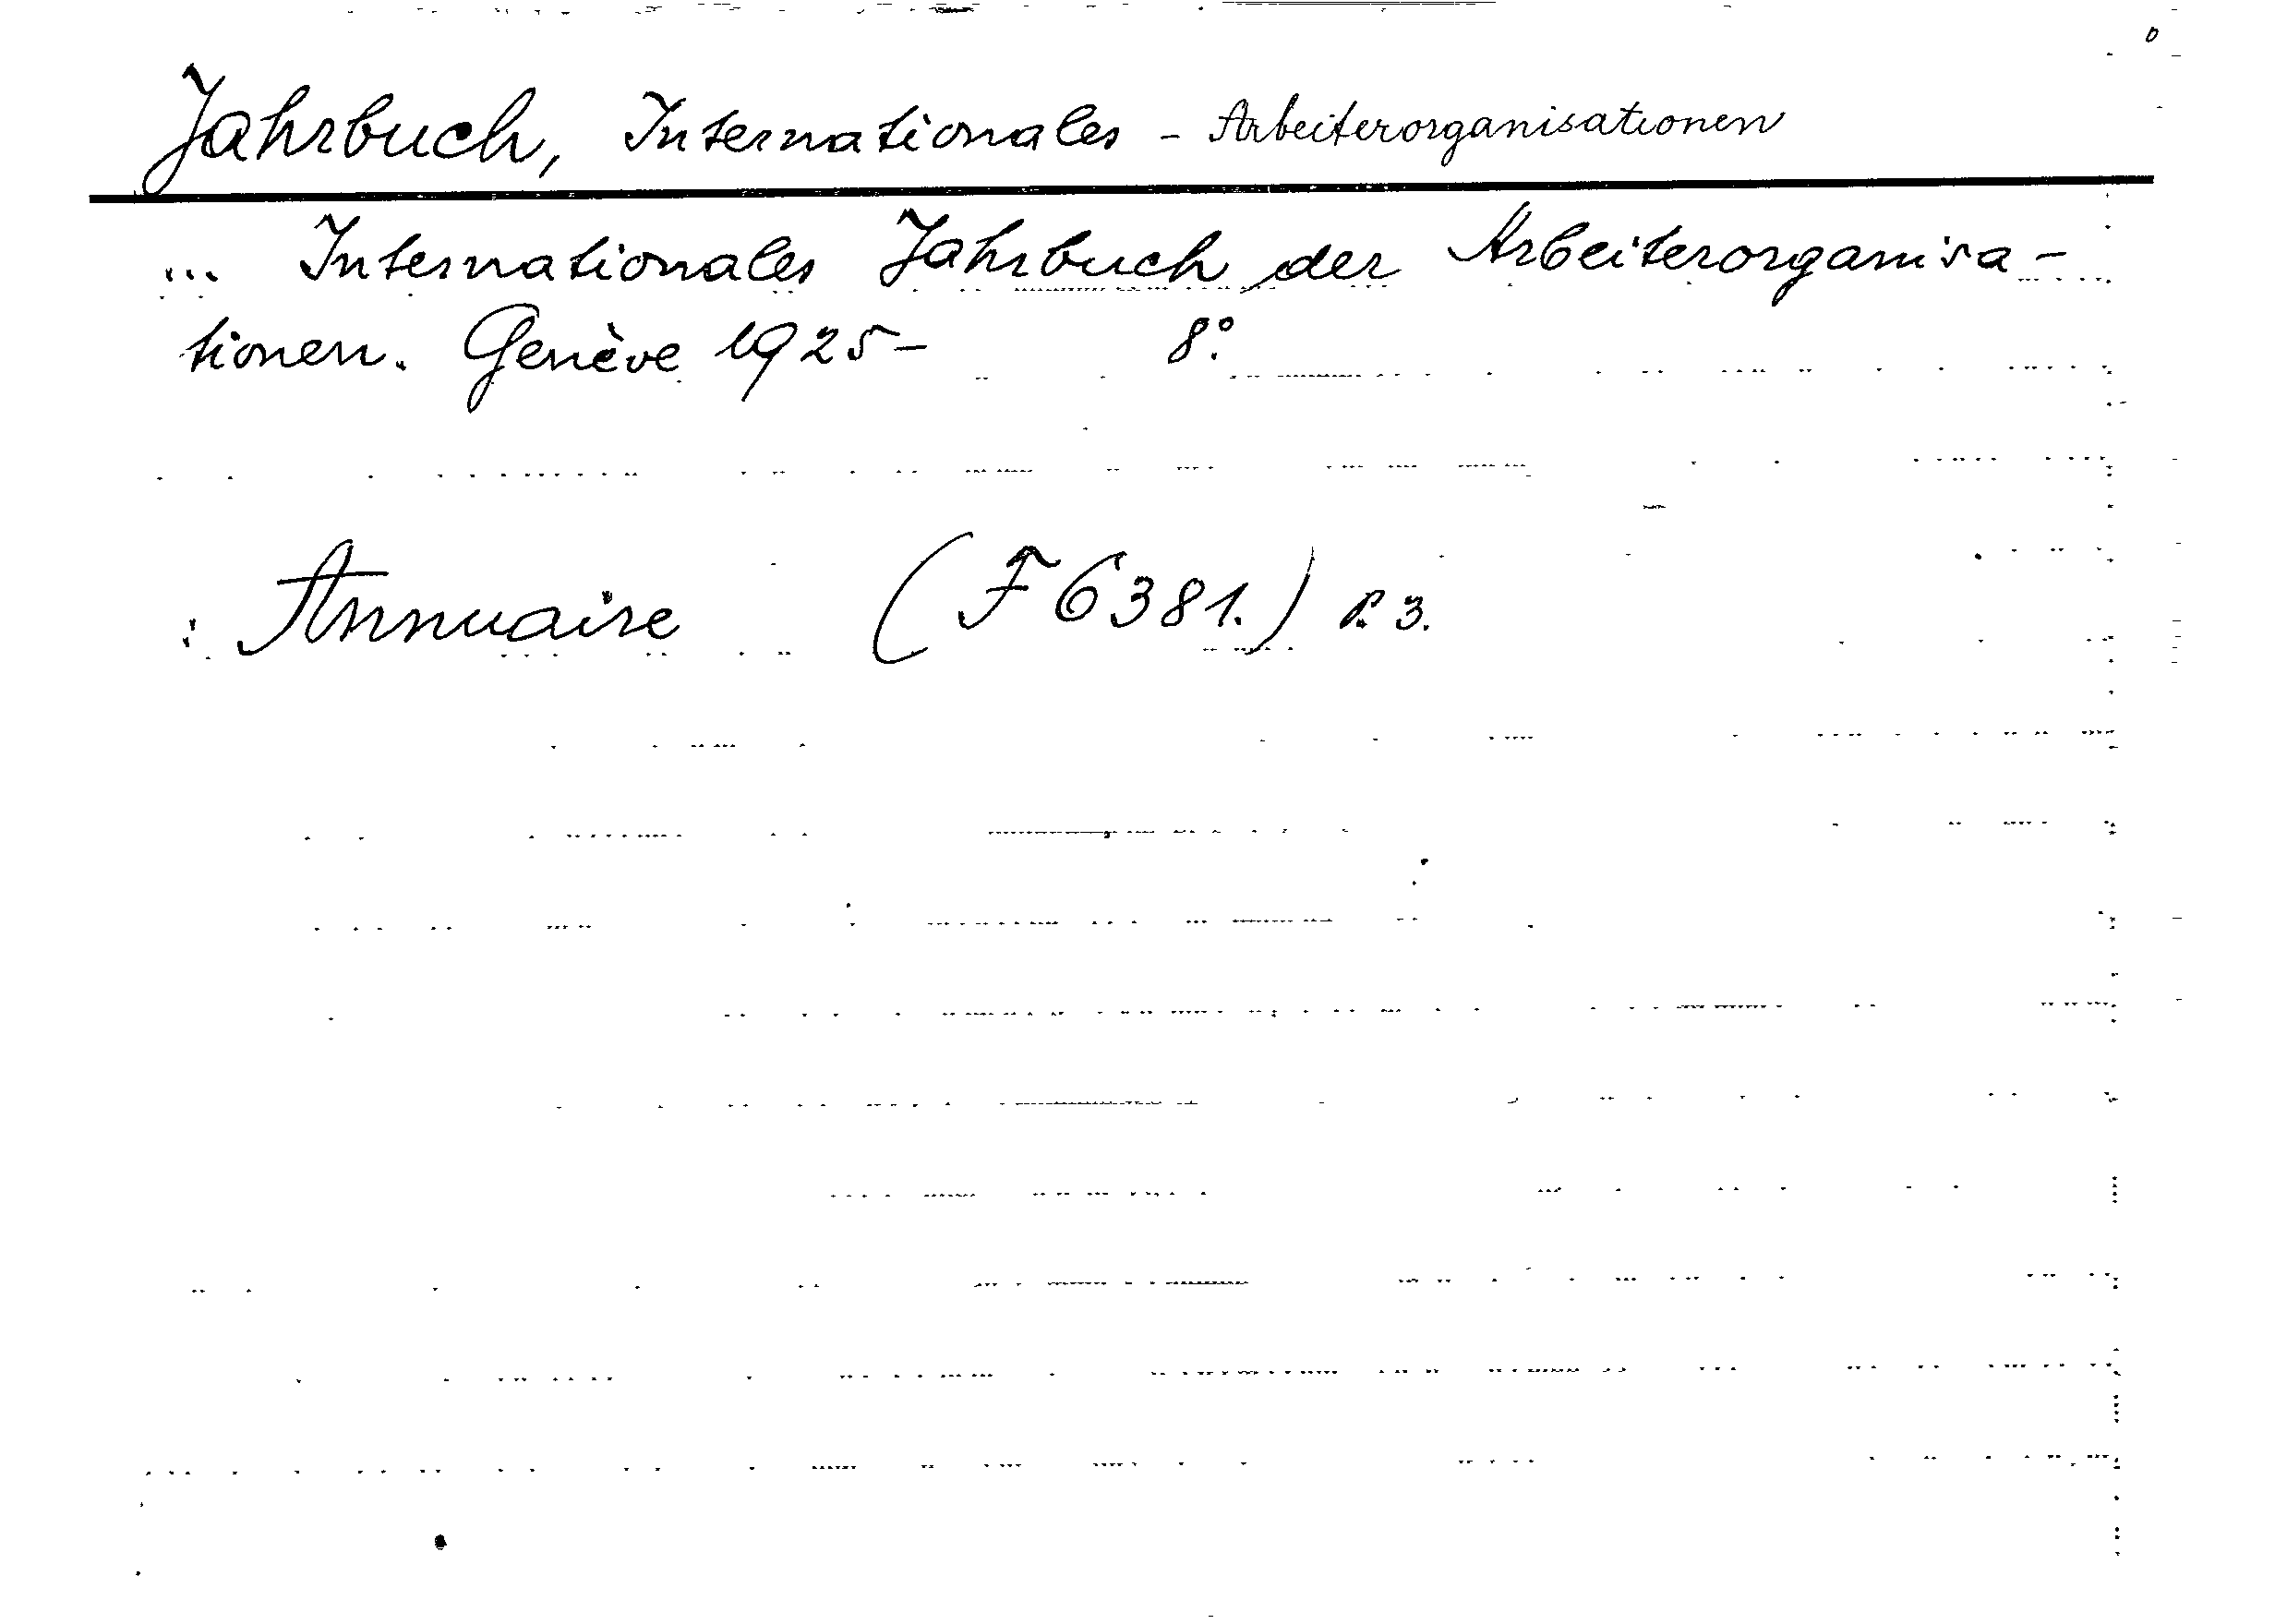 Jahrbuch, Internationales - Arbeiterorganisationen
... Internationales Jahrbuch der Arbeiterorganisa-
tionen. Genève 1925- 8°.
: Annuaire (F 6381.) P. 3.